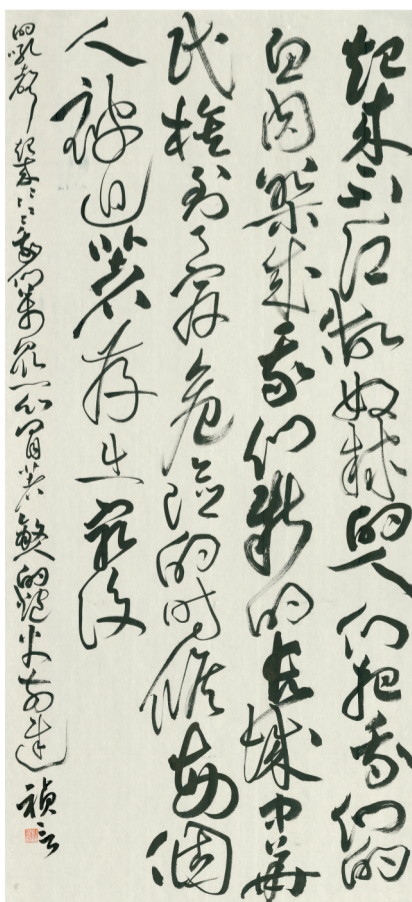 起来不愿做奴隶的人们把我们的
血肉築成我们新的长城中华
民族到了最危险的时候每個
人被迫着发出最后
的吼声起来起来起来我们万众一心冒着敌人的炮火前进